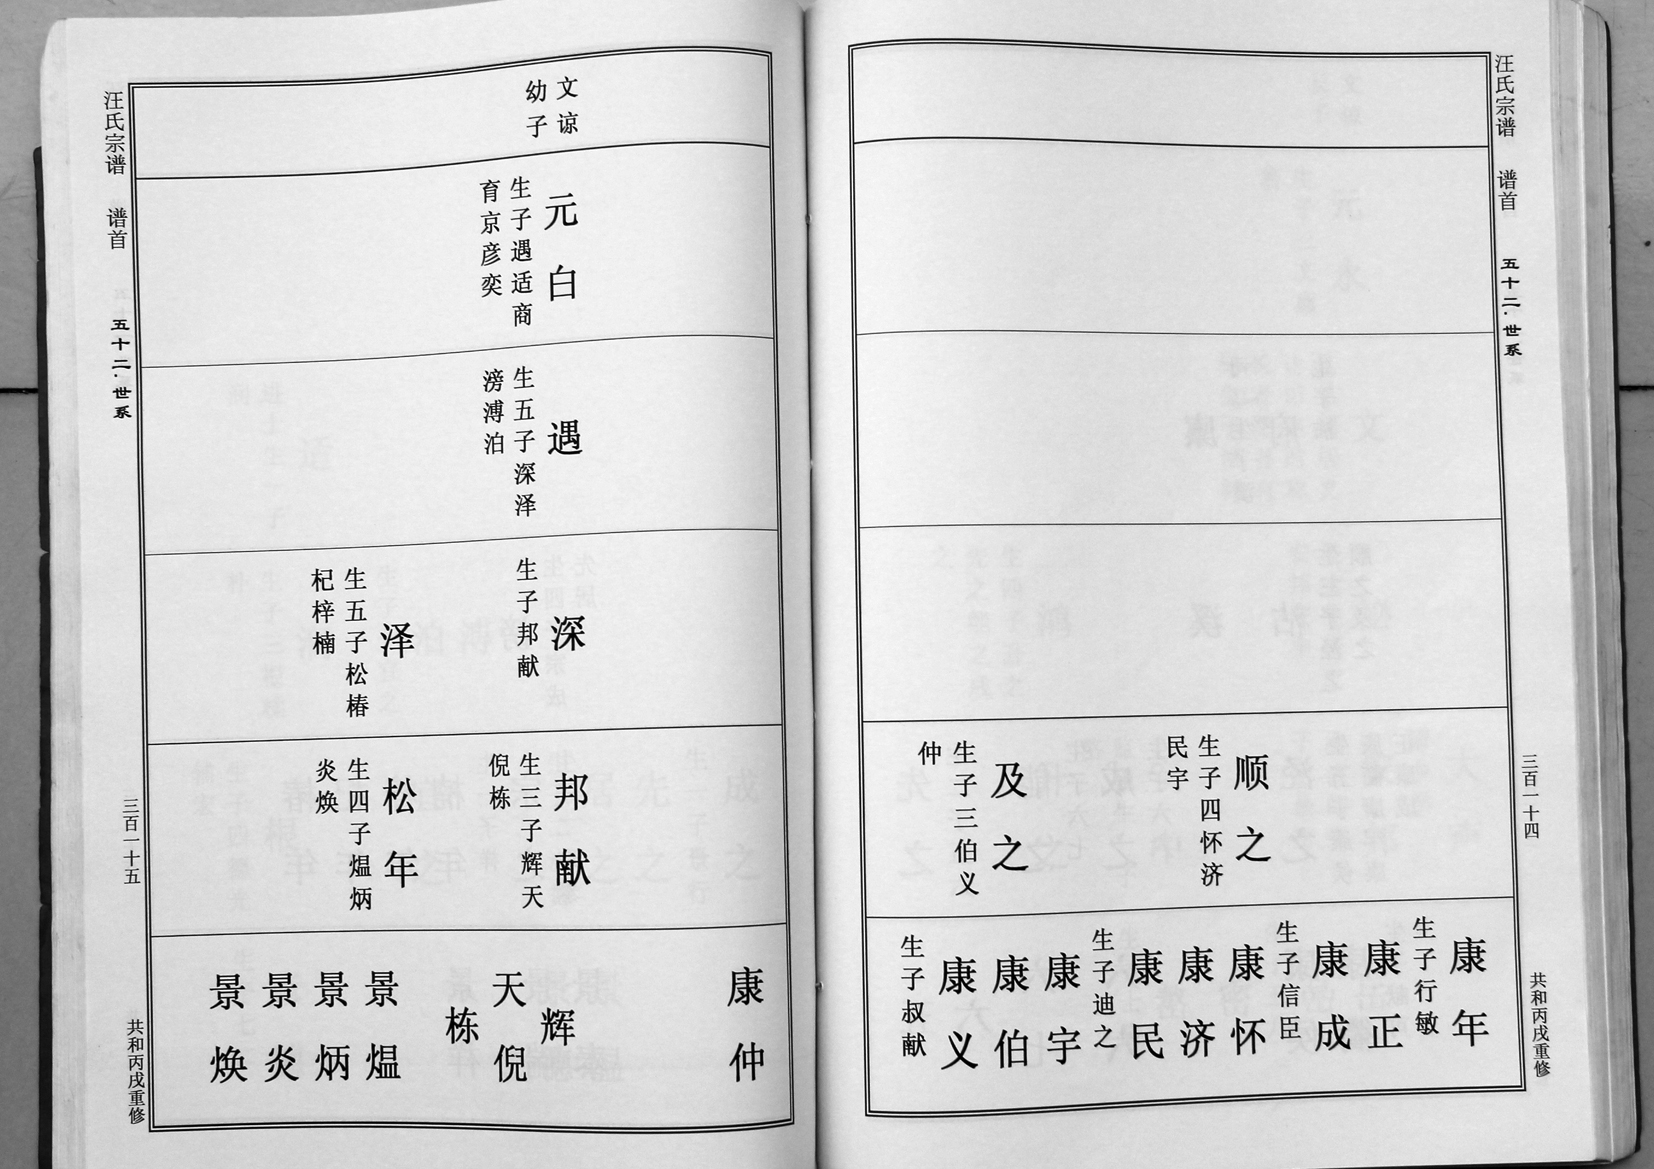 汪氏宗谱 谱首 五十二·世系
三百一十四
共和丙戌重修
顺之
生子四怀济
民宇
及之
生子三伯义
仲
康年
生子行敏
康正
康成
生子信臣
康怀
康济
康民
生子迪之
康宇
康伯
康义
生子叔献
文谅
幼子
元白
生子遇适商
育京彦奕
遇
生五子深泽
滂溥泊
深
生子邦献
泽
生五子松椿
杞梓楠
邦献
生三子辉天
倪栋
松年
生四子煴炳
炎焕
康仲
辉
天倪
栋
景煴
景炳
景炎
景焕
汪氏宗谱 谱首 五十二·世系
三百一十五
共和丙戌重修